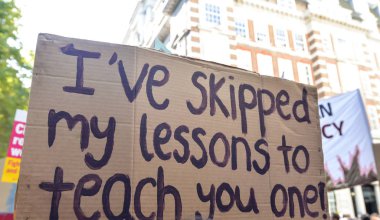 I've skipped
my lessons to
teach you one!